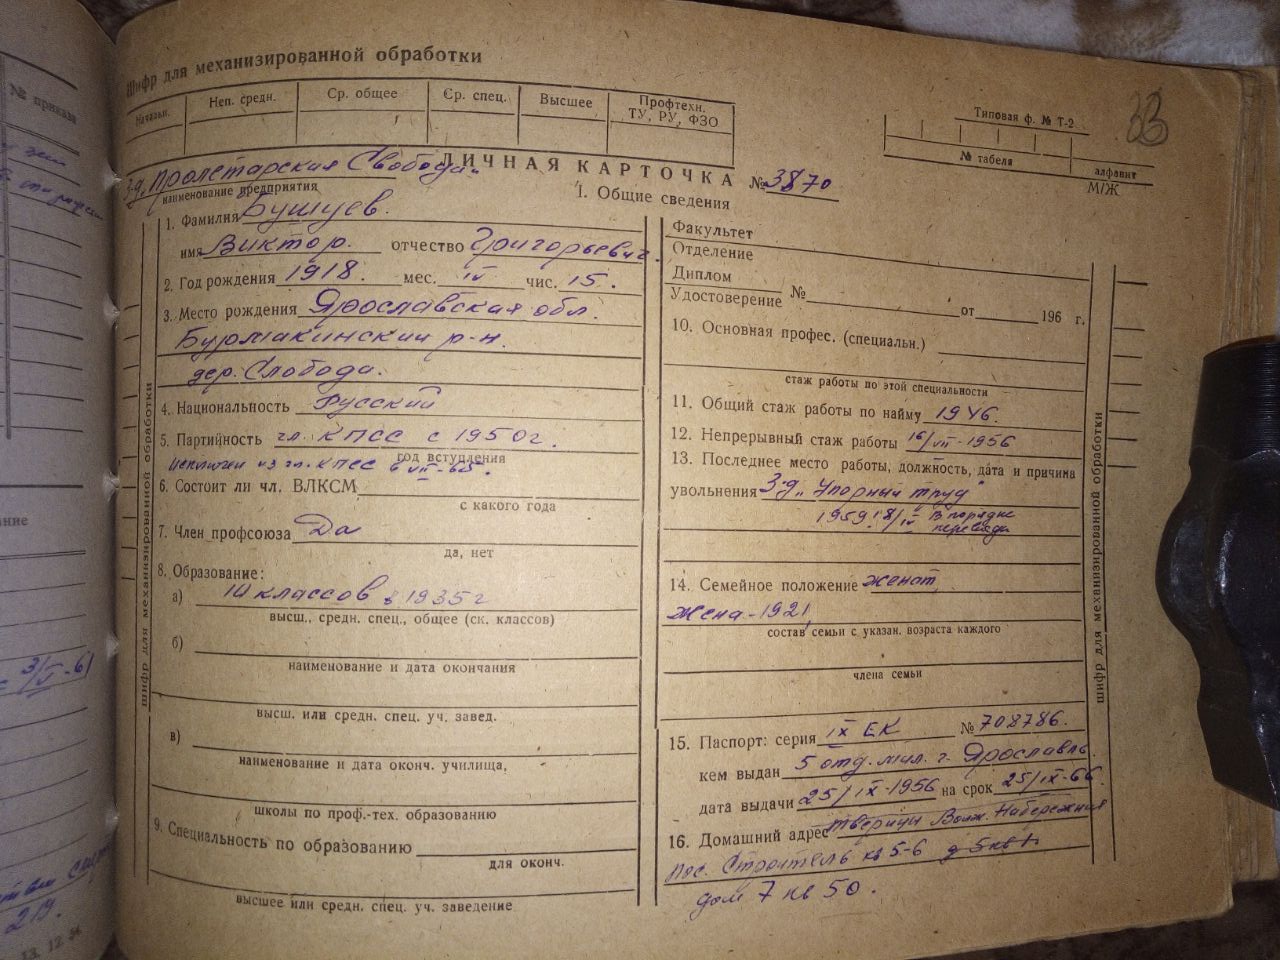 № приказа
3/V-61
219.
13. 12. 54
Шифр для механизированной обработки
Начальн.
Неп. средн.
Ср. общее
Ср. спец.
Высшее
Профтехн.
ТУ, РУ, ФЗО
Типовая ф. № Т-2
33
№ табеля
алфавит
М/Ж
ЛИЧНАЯ КАРТОЧКА № 3870
З-д „Пролетарская Свобода"
наименование предприятия
1. Общие сведения
1. Фамилия Бушуев.
имя Виктор. отчество Григорьевич.
2. Год рождения 1918. мес. IV чис. 15.
3. Место рождения Ярославская обл.
Бурмакинский р-н.
дер. Слобода.
4. Национальность Русский
5. Партийность чл. КПСС с 1950г.
год вступления
исключен из чл. КПСС в VII-65.
6. Состоит ли чл. ВЛКСМ
с какого года
7. Член профсоюза Да
да, нет
8. Образование:
а) 10 классов в 1935г
высш., средн. спец., общее (ск. классов)
б)
наименование и дата окончания
высш. или средн. спец. уч. завед.
в)
наименование и дата оконч. училища,
школы по проф.-тех. образованию
9. Специальность по образованию
для оконч.
высшее или средн. спец. уч. заведение
шифр для механизированной обработки
Факультет
Отделение
Диплом
Удостоверение № от 196 г.
10. Основная профес. (специальн.)
стаж работы по этой специальности
11. Общий стаж работы по найму 1946.
12. Непрерывный стаж работы 16/VII-1956
13. Последнее место работы, должность, дата и причина
увольнения З-д „Упорный труд"
1959 18/IV В порядке
перевода
14. Семейное положение женат,
жена-1921,
состав семьи с указан. возраста каждого
члена семьи
15. Паспорт: серия IX ЕК № 708786.
кем выдан 5 отд. мил. г. Ярославль.
дата выдачи 25/IX-1956 на срок 25/IX-66
16. Домашний адрес Тверицы Волж. Набережная
пос. Строитель кв 5-6 д 5 кв 1
дом 7 кв 50.
шифр для механизированной обработки